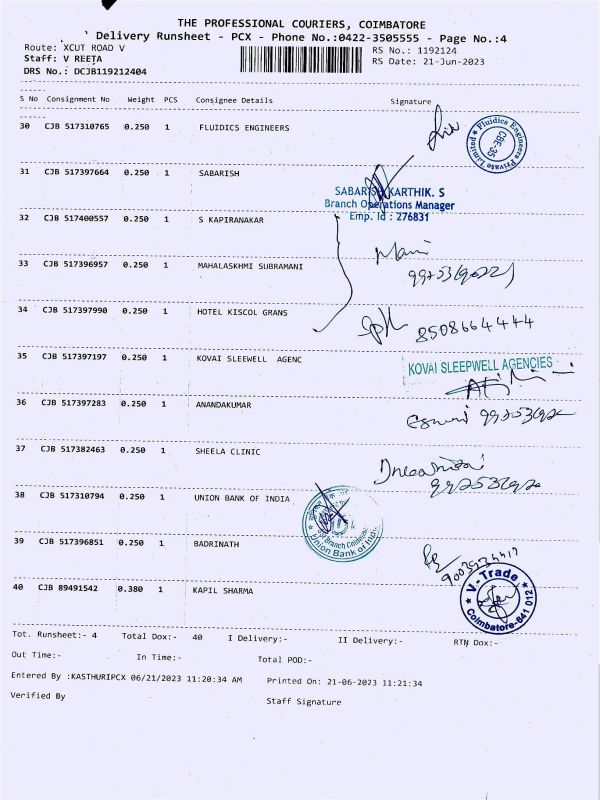 THE PROFESSIONAL COURIERS, COIMBATORE
Delivery Runsheet - PCX - Phone No.:0422-3505555 - Page No.:4
Route: XCUT ROAD V
RS No.: 1192124
Staff: V REETA
RS Date: 21-Jun-2023
DRS No.: DCJB119212404
S No Consignment No Weight PCS Consignee Details Signature
30 CJB 517310765 0.250 1 FLUIDICS ENGINEERS
Fluidics Engineers Private Limited
CBE-35
31 CJB 517397664 0.250 1 SABARISH
SABARISH KARTHIK. S
Branch Operations Manager
Emp. Id : 276831
32 CJB 517400557 0.250 1 S KAPIRANAKAR
33 CJB 517396957 0.250 1 MAHALASKHMI SUBRAMANI
34 CJB 517397990 0.250 1 HOTEL KISCOL GRANS
8508664444
35 CJB 517397197 0.250 1 KOVAI SLEEWELL AGENC
KOVAI SLEEPWELL AGENCIES
36 CJB 517397283 0.250 1 ANANDAKUMAR
37 CJB 517382463 0.250 1 SHEELA CLINIC
38 CJB 517310794 0.250 1 UNION BANK OF INDIA
Union Bank of India
39 CJB 517396851 0.250 1 BADRINATH
40 CJB 89491542 0.380 1 KAPIL SHARMA
V-Trade
Coimbatore-641 012
Tot. Runsheet:- 4 Total Dox:- 40 I Delivery:- II Delivery:- RTN Dox:-
Out Time:- In Time:- Total POD:-
Entered By :KASTHURIPCX 06/21/2023 11:20:34 AM Printed On: 21-06-2023 11:21:34
Verified By Staff Signature